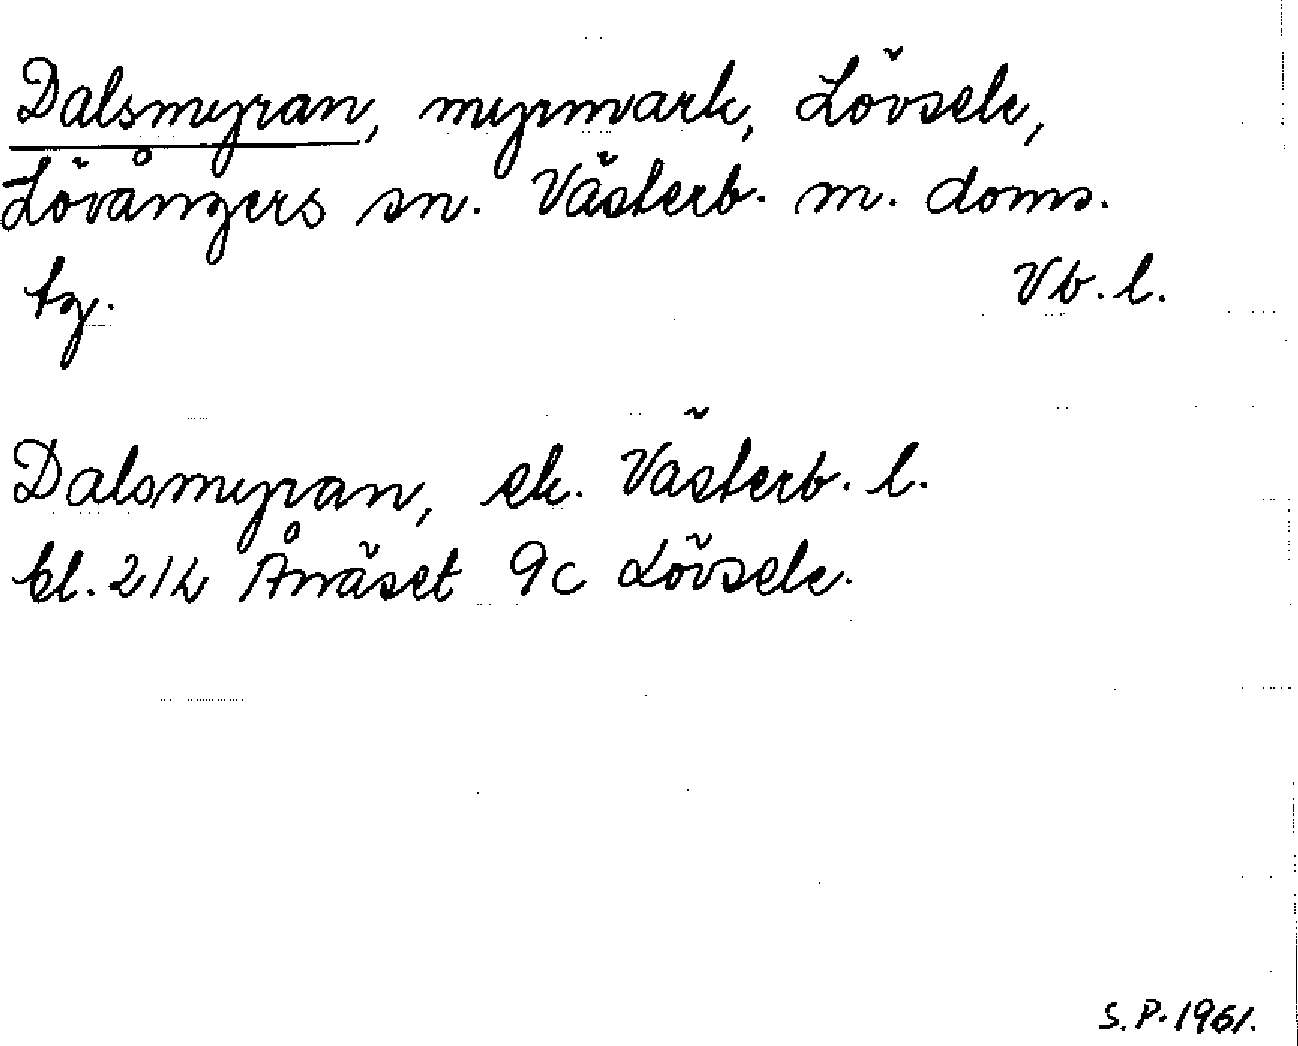 Dalsmyran, myrmark, Lövsele,
Lövångers sn. Västerb. m. doms.
tg. Vb. l.
Dalsmyran, ek. Västerb. l.
bl. 21h Ånäset 9c Lövsele.
S.P. 1961.